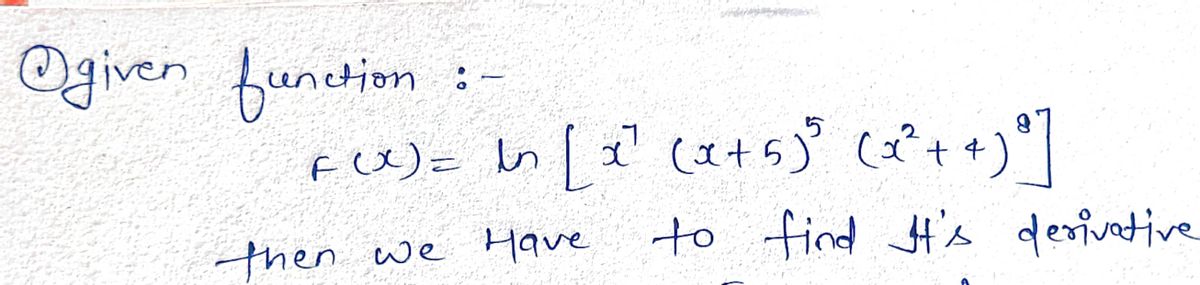 ① given function :-
F(x) = ln [ x⁷ (x+5)⁵ (x²+4)⁸ ]
then we Have to find It's derivative